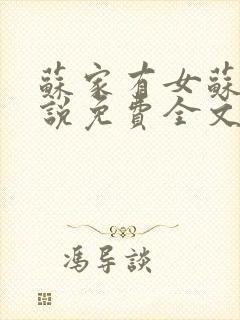 蘇家有女蘇
說免費全文
馮导談